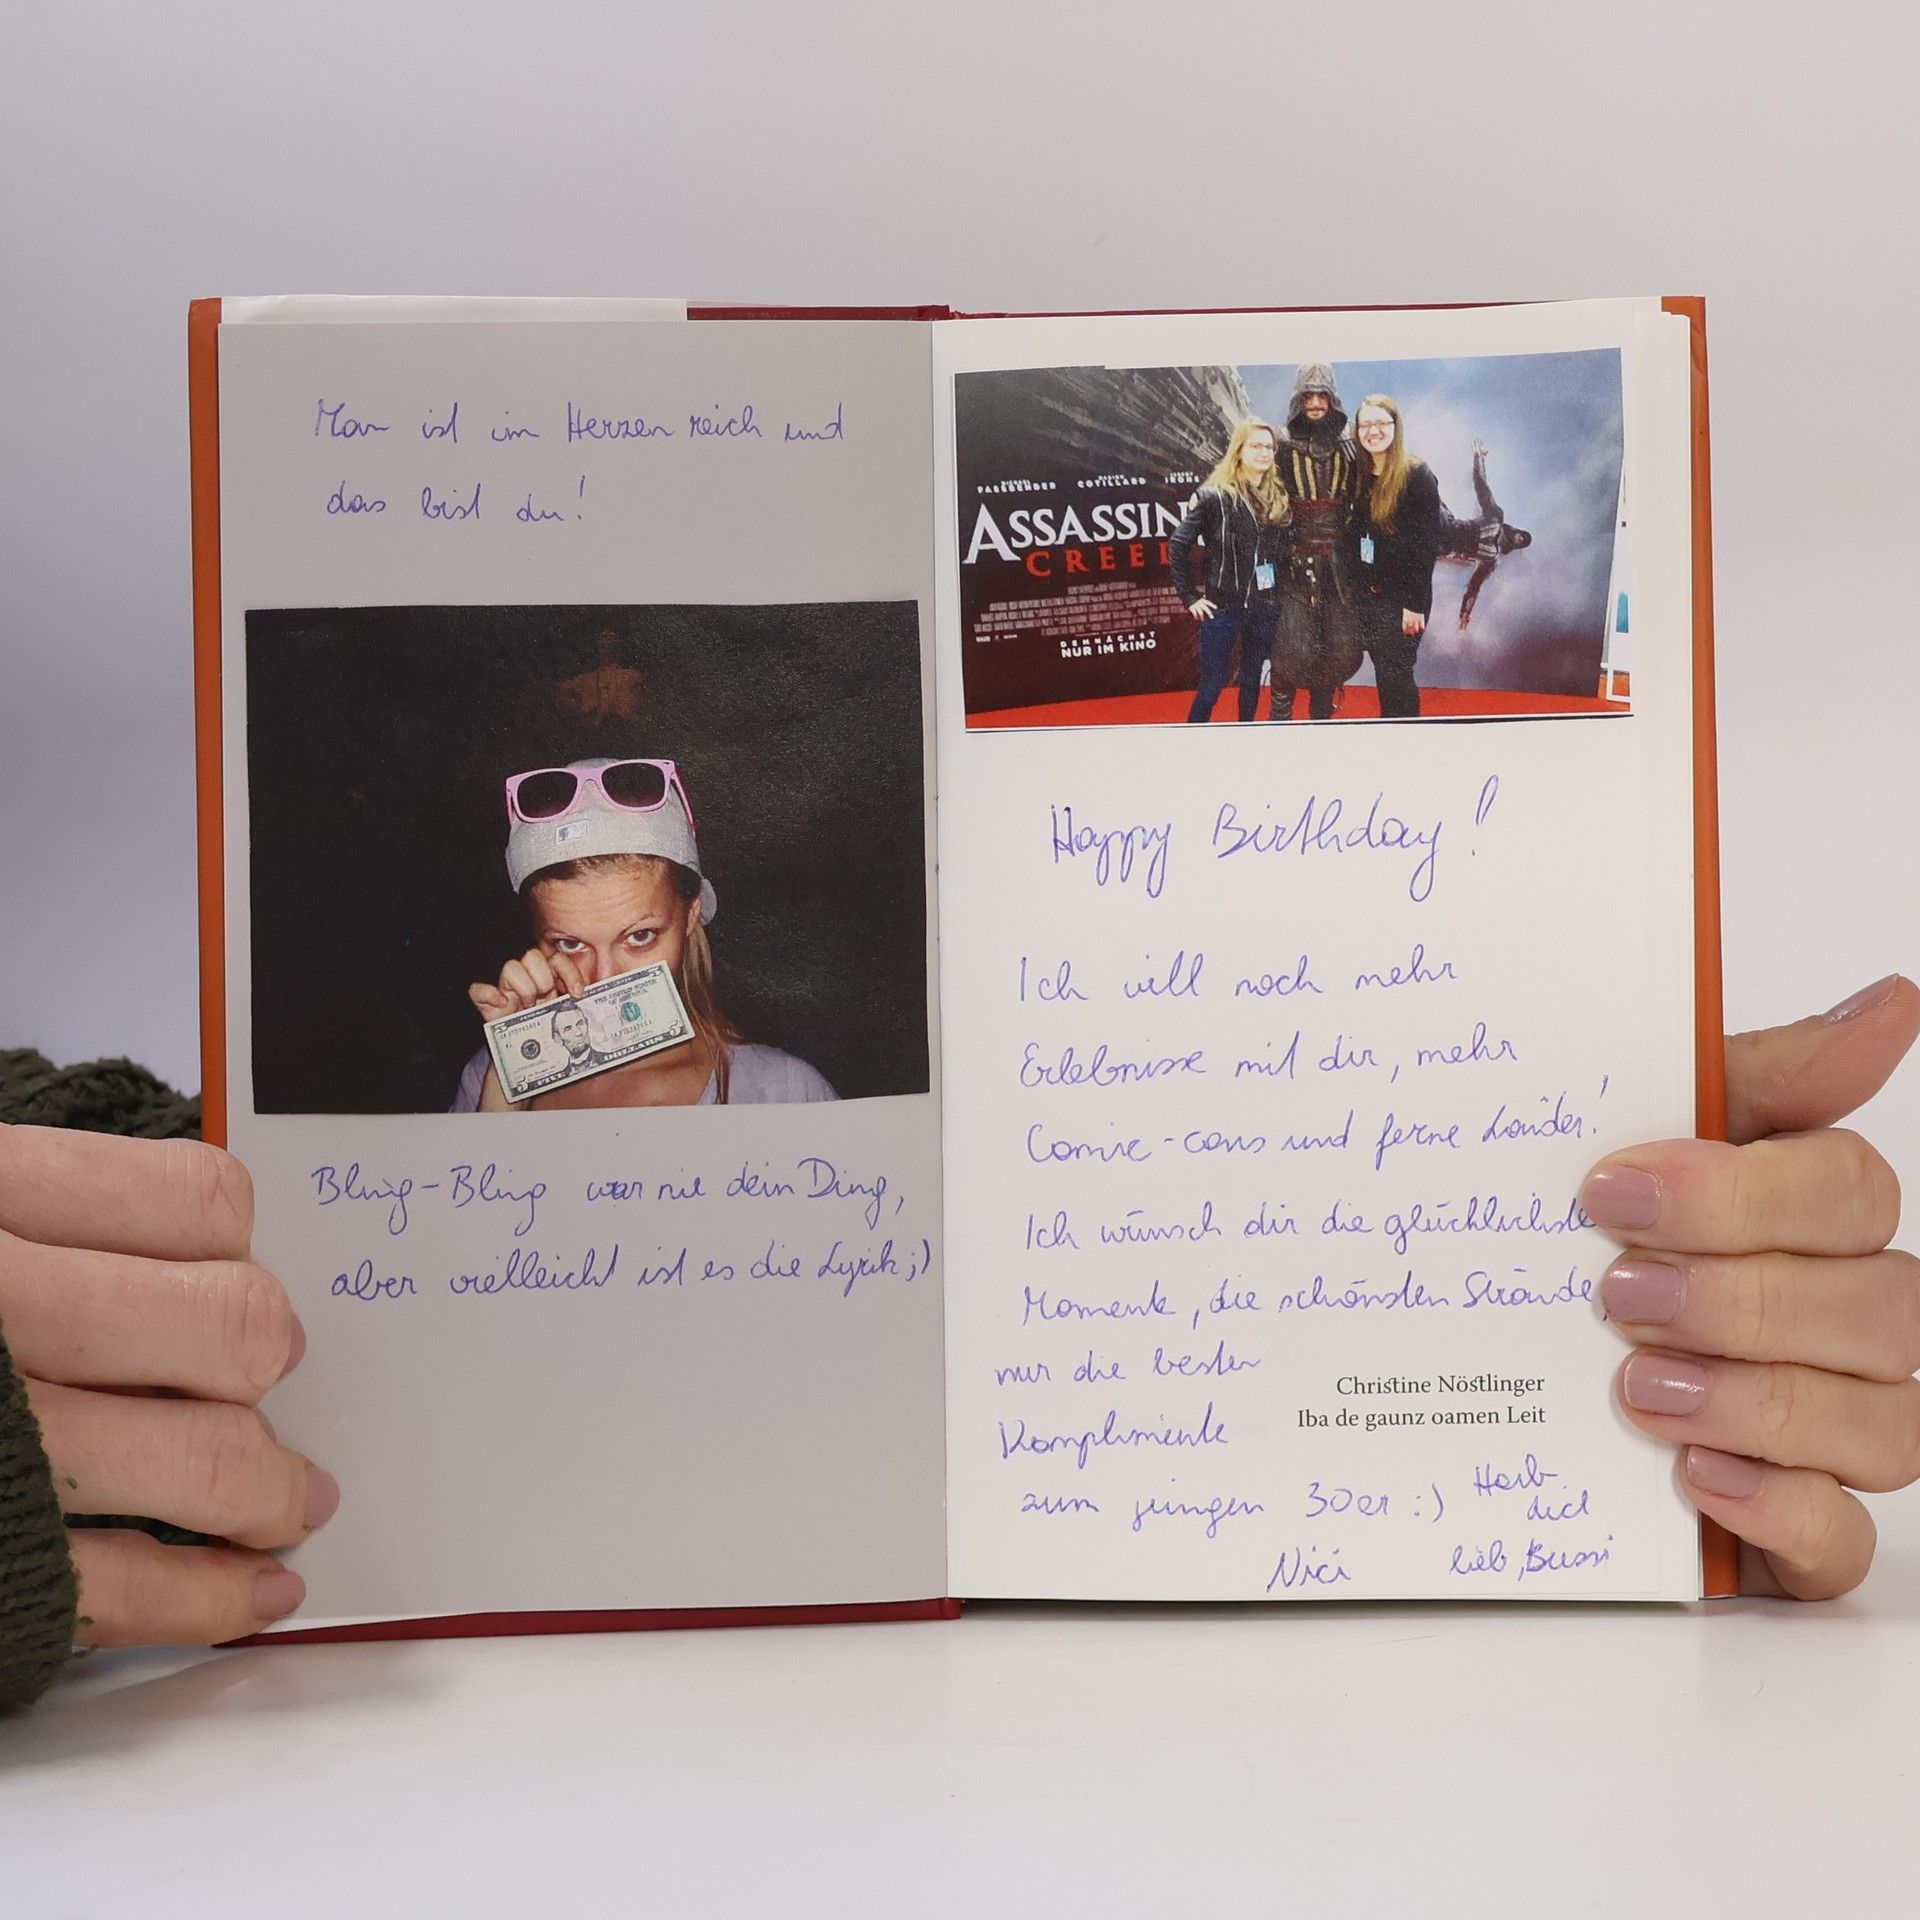 Man ist im Herzen reich und
das bist du!
THE UNITED STATES
OF AMERICA
5
5
FIVE DOLLARS
Bling-Bling war nie dein Ding,
aber vielleicht ist es die Lyrik ;)
MICHAEL FASSBENDER
MARION COTILLARD
JEREMY IRONS
ASSASSIN'
CREED
DEMNÄCHST
NUR IM KINO
Happy Birthday!
Ich will noch mehr
Erlebnisse mit dir, mehr
Comic-cons und ferne Länder!
Ich wünsch dir die glücklichste
Momente, die schönsten Strände,
nur die besten
Komplimente
zum jungen 30er :)
Christine Nöstlinger
Iba de gaunz oamen Leit
Hab
dich
lieb, Bussi
Nici